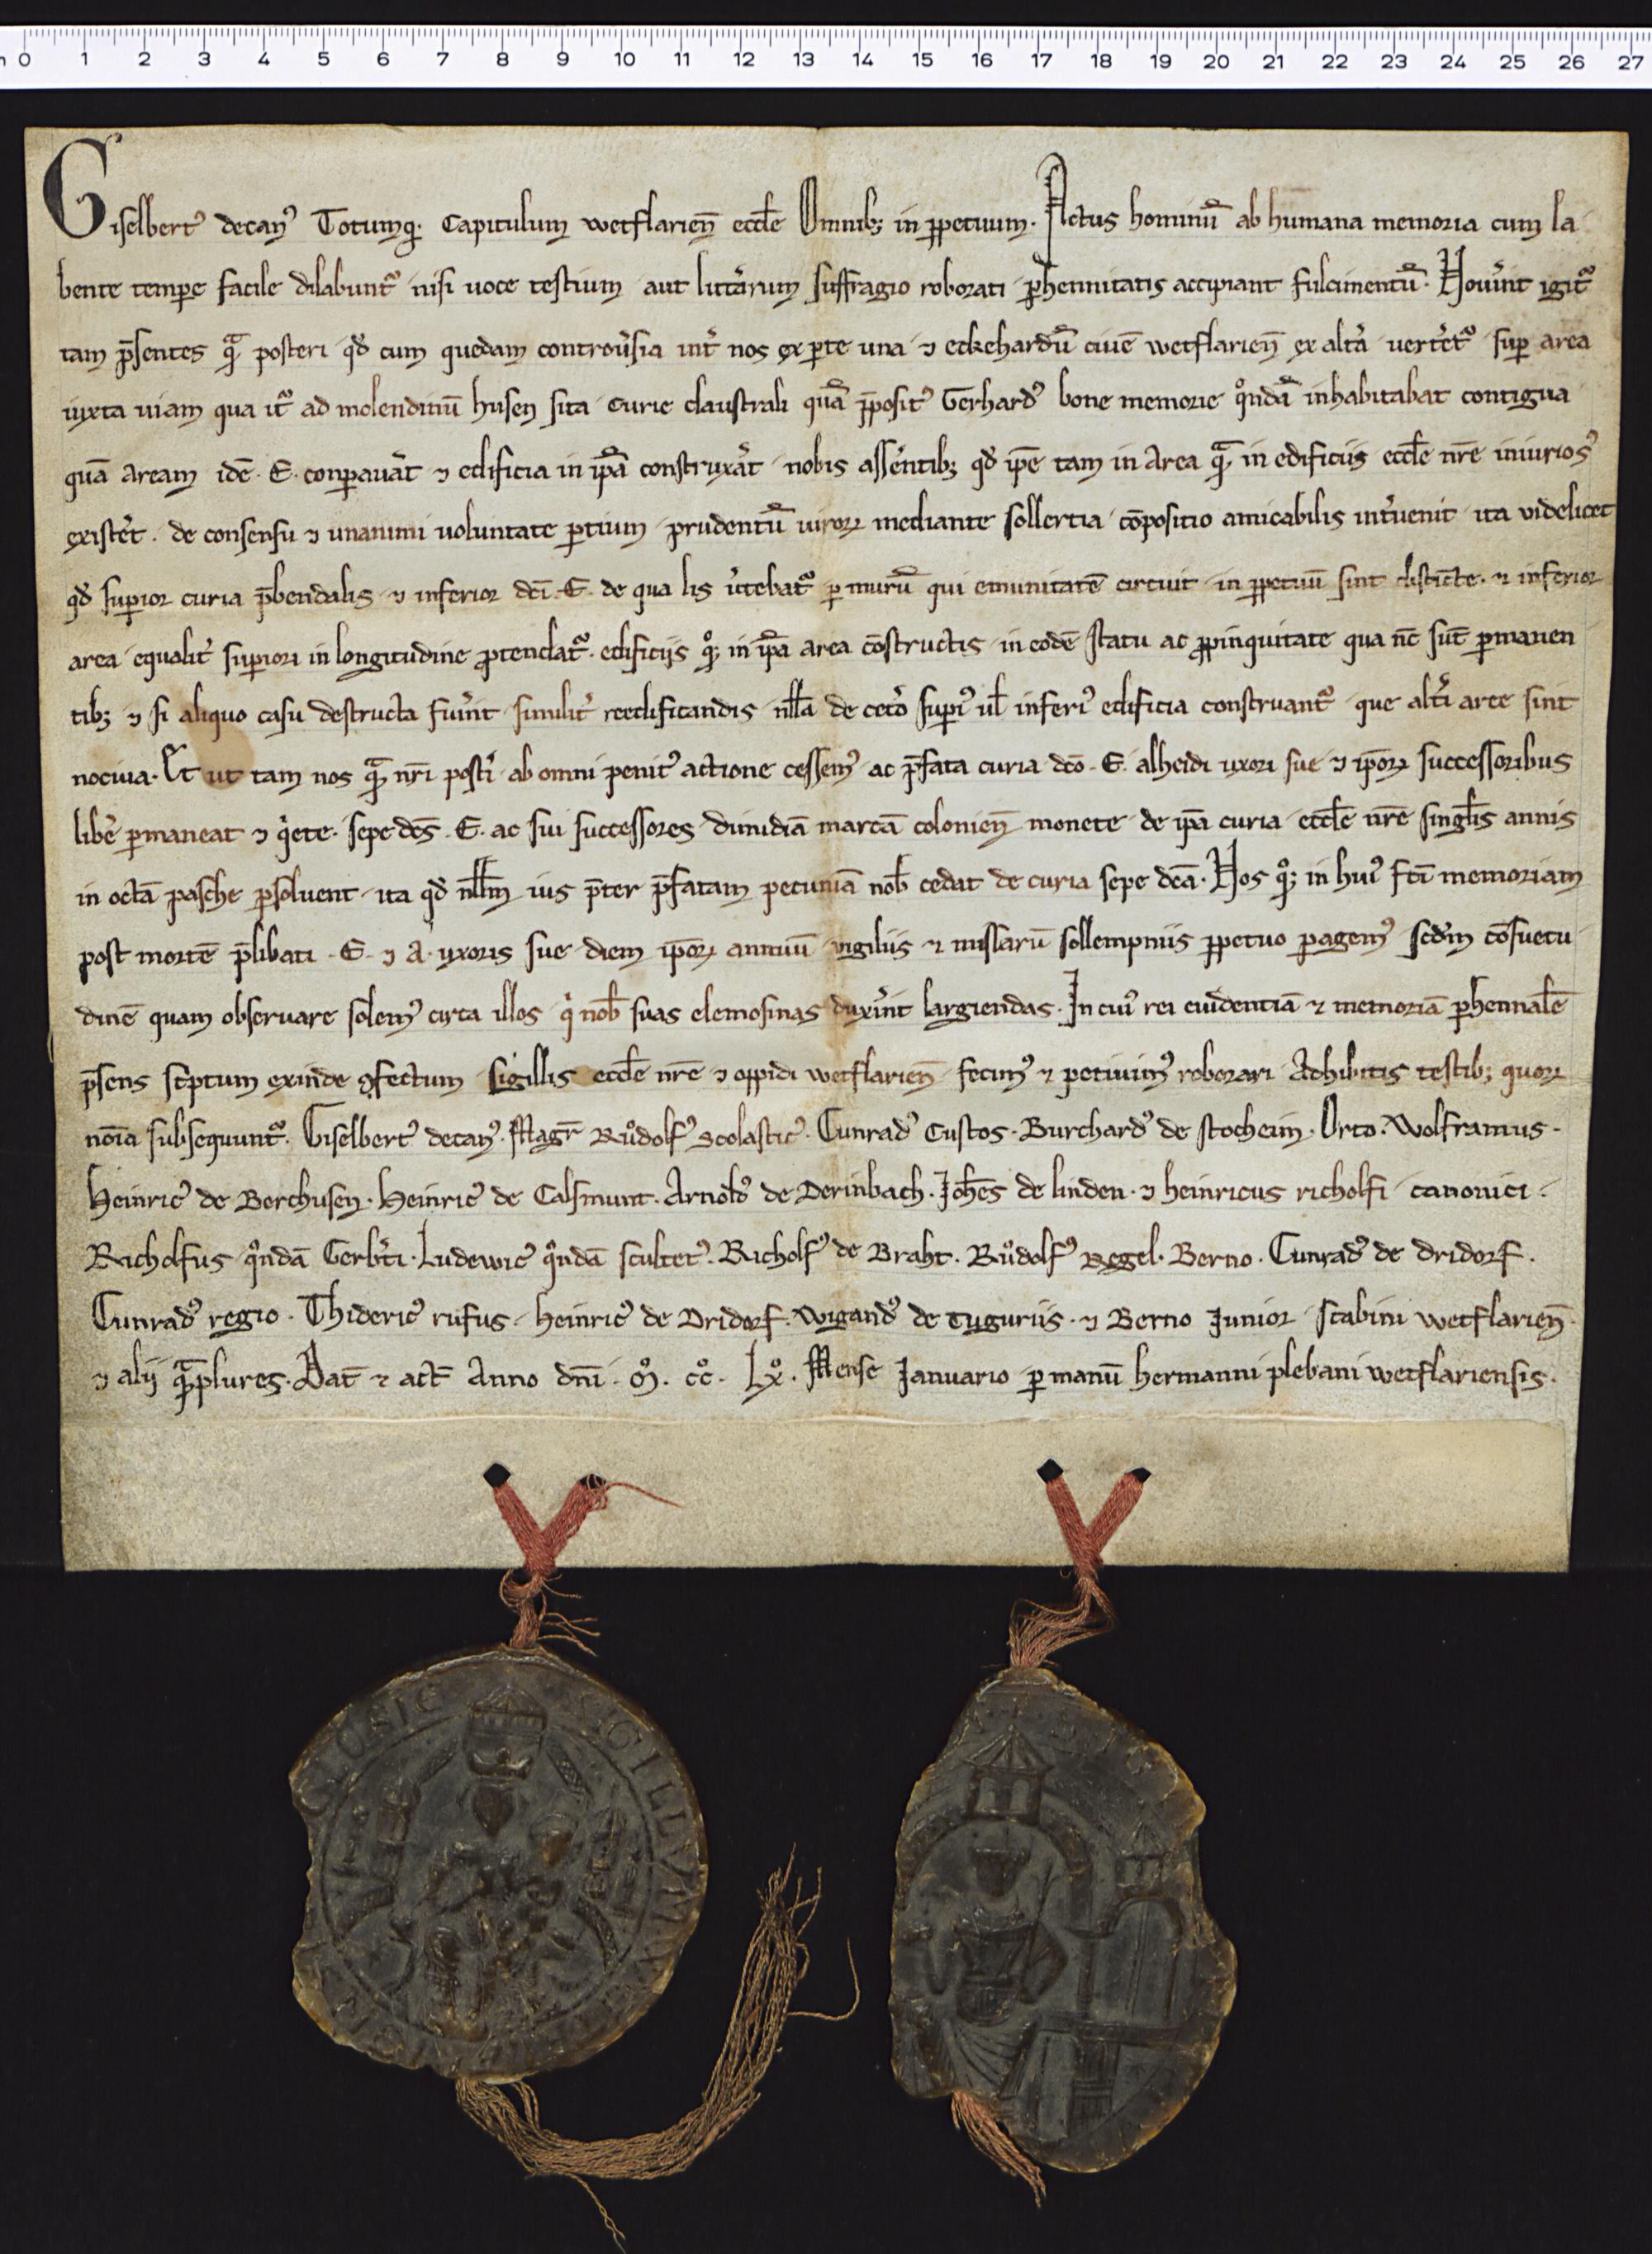 0 1 2 3 4 5 6 7 8 9 10 11 12 13 14 15 16 17 18 19 20 21 22 23 24 25 26 27
Giselbertꝰ decanꝰ Totumqꝫ Capitulum wetflarien̄ eccl̄e Omnibꝫ in ꝑpetuum. Actus hominū ab humana memoria cum la
bente tempore facile dilabuntᷣ nisi uoce testium aut litt̓arum suffragio roborati ꝑhennitatis accipiant fulcimentū. Nouīnt igitᷣ
tam p̄sentes qᷓm posteri qđ cum quedam contro̓uersia int̓ nos ex ꝑte una ⁊ eckehardū ciuē wetflarien̄ ex alt̓a uertēretᷣ suꝑ area
iuxta uiam qua itᷣ ad molendinū husen sita curie claustrali quā p̄positꝰ Gerhardꝰ bone memorie qͦndā inhabitabat contigua
quā aream idē .E. conꝑauāt ⁊ edificia in ip̄a construxāt nobis assēntibꝫ qđ ip̄e tam in area qᷓm in edificiis eccl̄e nr̄e iniuriosꝰ
existēt. de consensu ⁊ unanimi uoluntate ꝑtium prudentū uiroꝝ mediante sollertia cōpositio amicabilis int̓uenit ita videlicet
qđ suꝑior curia p̄bendalis ⁊ inferior dc̄i .E. de qua lis u̓tebatᷣ ꝑ murū qui emunitatē circuit in ꝑpetuū sint distīcte. ⁊ inferior
area equalit̓ suꝑiori in longitudine ꝓtendatᷣ. edificijs qͦꝫ in ip̄a area cōstructis in eodē statu ac ꝓpinquitate qua nc̄ sūt ꝑmanen
tibꝫ ⁊ si aliquo casu destructa fuīnt similit̓ reedificandis nll̄a de cet̓o suꝑiꝰ ul̄ inferiꝰ edificia construantᷣ que alt̓i aree sint
nociua. Et ut tam nos qᷓm nr̄i post̓i ab omni penitꝰ actione cessemꝰ ac p̄fata curia dc̄o .E. alheidi uxori sue ⁊ ip̄oꝝ successoribus
libē ꝑmaneat ⁊ qͥete. sepe dc̄s .E. ac sui successores dimidiā marcā colonien̄ monete de ip̄a curia eccl̄e nr̄e singl̄is annis
in octā pasche ꝑsoluent ita qđ nll̄m ius p̄ter p̄fatam pecuniā nob̄ cedat de curia sepe dc̄a. Nos qͦꝫ in huiꝰ fc̄i memoriam
post mortē p̄libati .E. ⁊ A. uxoris sue diem ip̄oꝝ annuū uigiliis ⁊ missarū sollempniis ꝑpetuo ꝑagemꝰ scđm cōsuetu
dinē quam obseruare solemꝰ circa illos qͥ nob̄ suas elemosinas duxīnt largiendas. In cuiꝰ rei euidentiā ⁊ memoriā ꝑhennalē
p̄sens sc̓ptum exinde ꝯfectum sigillis eccl̄e nr̄e ⁊ oppidi wetflarien̄ fecimꝰ ⁊ petiuimꝰ roborari Adhibitis testibꝫ quoꝝ
noīa subsequuntᷣ. Giselbertꝰ decanꝰ. Magr̄ Růdolfꝰ scolasticꝰ. Cunradꝰ Custos. Burchardꝰ de stocheim. Orto. Wolframus.
Heinricꝰ de Berchusen. Heinricꝰ de Calsmunt. Arnoldꝰ de Derinbach. Joh̄es de linden. ⁊ heinricus richolfi canonici.
Richolfus qͦndā Gerb̓ti. Ludewicꝰ qͦndā scultetꝰ. Richolfꝰ de Braht. Růdolfꝰ Regel. Berno. Cunradꝰ de dridorf.
Cunradꝰ regio. Thidericꝰ rufus. heinricꝰ de Dridorf. Wigandꝰ de Tuguriis. ⁊ Berno Junior scabini wetflarien̄
⁊ alij qᷓmplures. Dat̄ ⁊ act̄ Anno dn̄i. Mͦ. ccͦ. Lxͦ. Mense Januario ꝑ manū hermanni plebani wetflariensis.
SIGILLVM